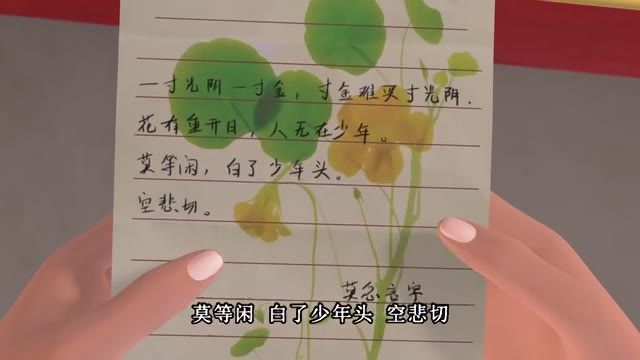 一寸光阴一寸金，寸金难买寸光阴.
花有重开日，人无在少年。
莫等闲，白了少年头。
空悲切。
莫等闲 白了少年头 空悲切